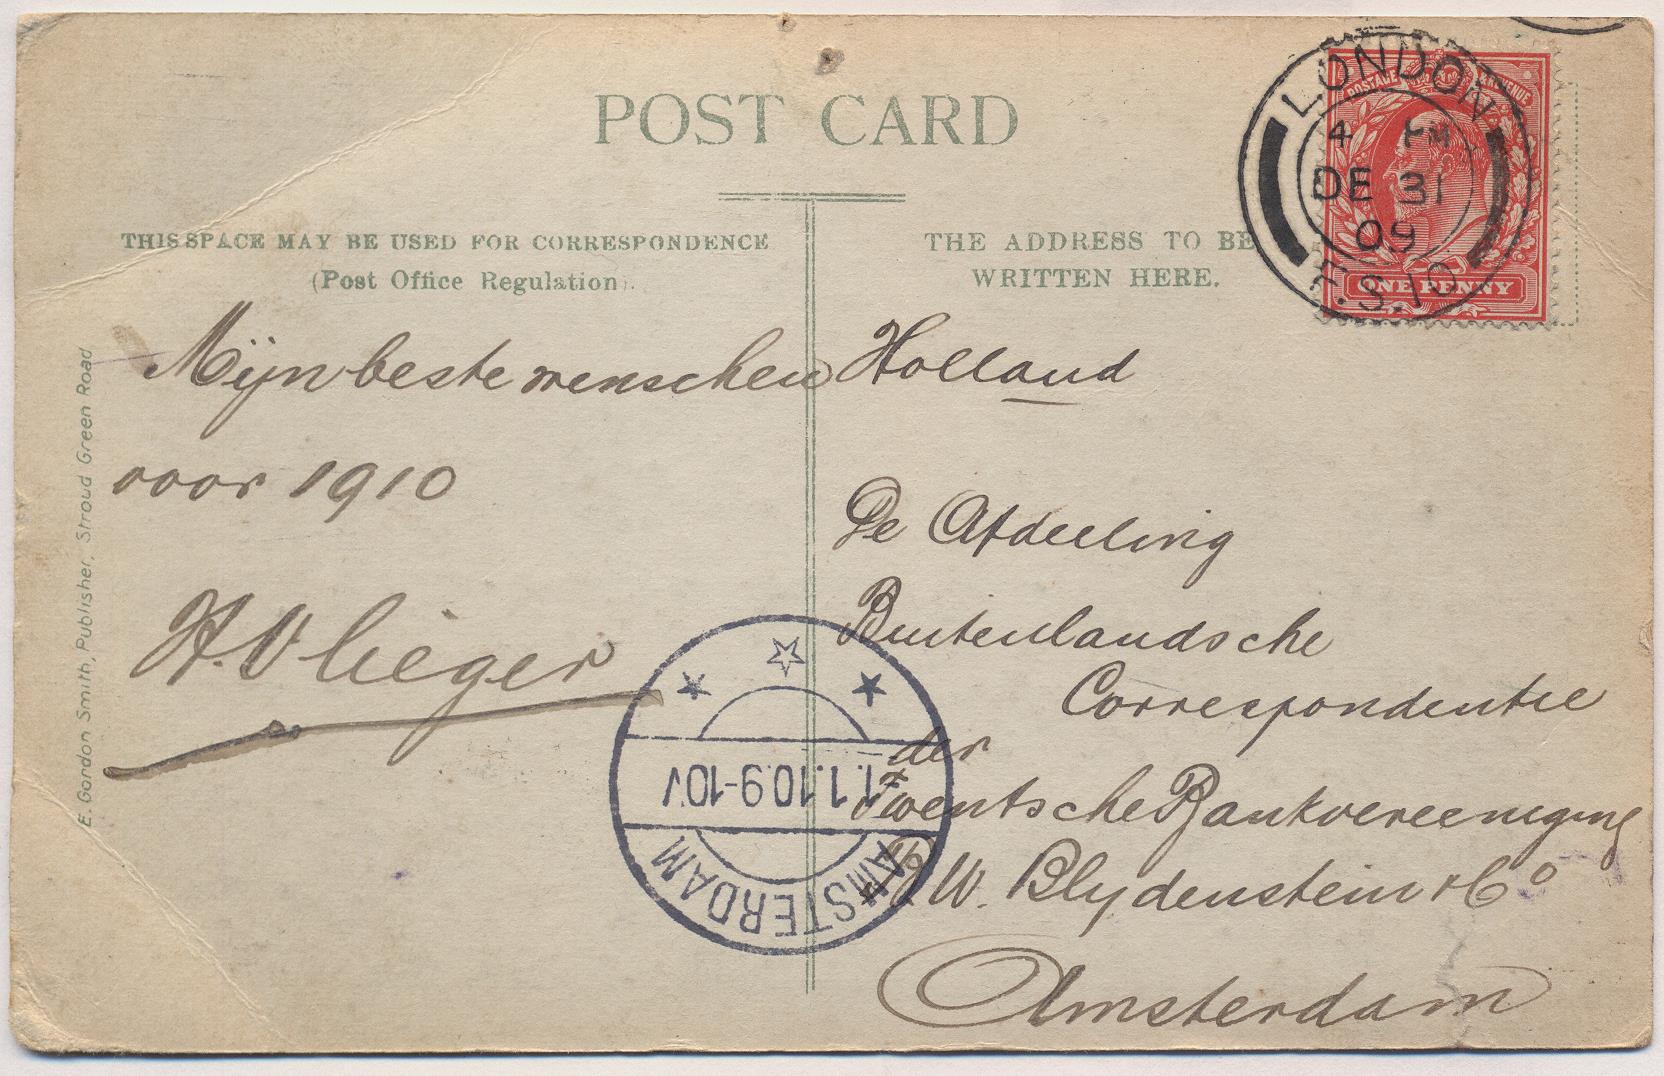 POST CARD
THIS SPACE MAY BE USED FOR CORRESPONDENCE
(Post Office Regulation).
THE ADDRESS TO BE
WRITTEN HERE.
LONDON
4 PM
DE 31
09
F.S.10
POSTAGE REVENUE
ONE PENNY
E. Gordon Smith, Publisher, Stroud Green Road
Mijn beste menschen
voor 1910
H. Vlieger
Holland
De Afdeeling
Buitenlandsche
Correspondentie
der
Twentsche Bankvereeniging
W. Blydenstein & Co
Amsterdam
1.1.10.9-10V
AMSTERDAM